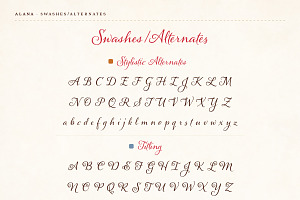 AGANA - SWASHES/ALTERNATES
Swashes/Alternates
Stylistic Alternates
A B C D E F G H I J K L M
N O P Q R S T U V W X Y Z
a b c d e f g h i j k l m n o p q r s t u v w x y z
Titling
A B C D E F G H I J K L M
N O P Q R S T U V W X Y Z